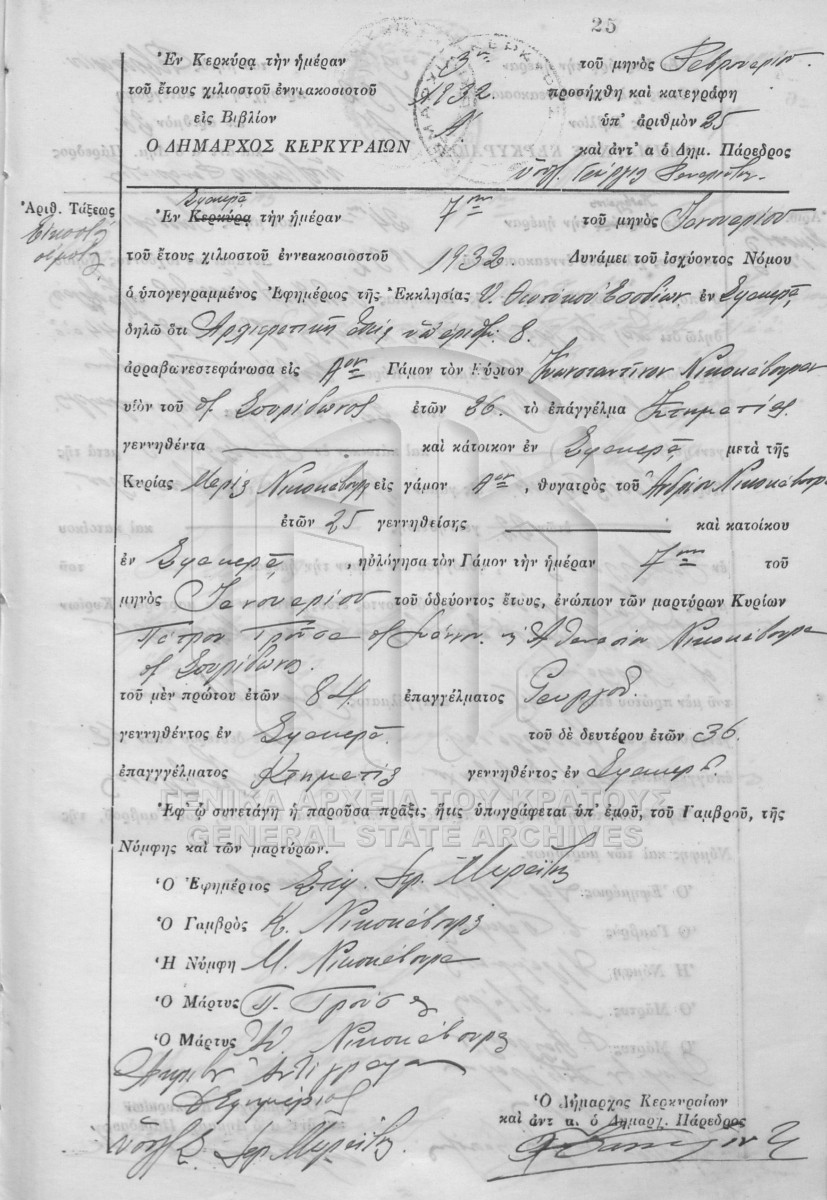 25
Ἐν Κερκύρᾳ τὴν ἡμέραν 3ην τοῦ μηνὸς Φεβρουαρίου
τοῦ ἔτους χιλιοστοῦ ἐννιακοσιοτοῦ 1932. προσήχθη καὶ κατεγράφη
εἰς Βιβλίον Α' ὑπ' ἀριθμὸν 25
Ο ΔΗΜΑΡΧΟΣ ΚΕΡΚΥΡΑΙΩΝ καὶ ἀντ' α ὁ Δημ. Πάρεδρος
Ἀριθ. Τάξεως
Ἐν Κερκύρᾳ τὴν ἡμέραν 7ην τοῦ μηνὸς Ἰανουαρίου
τοῦ ἔτους χιλιοστοῦ ἐννεακοσιοστοῦ 1932. Δυνάμει τοῦ ἰσχύοντος Νόμου
ὁ ὑπογεγραμμένος Ἐφημέριος τῆς Ἐκκλησίας Υ. Θεοτόκου Ἐσοδίων ἐν
δηλῶ ὅτι Ἀρχιερατικῇ ὑπ' ἀριθμ. 8.
ἀρραβωνεστεφάνωσα εἰς Αον Γάμον τὸν Κύριον Κωνσταντῖνον Νικοκάβουραν
υἱὸν τοῦ Σπυρίδωνος ἐτῶν 36. τὸ ἐπάγγέλμα Κτηματίας
γεννηθέντα καὶ κάτοικον ἐν μετὰ τῆς
Κυρίας Νικοκάβουρα εἰς γάμον Αον, θυγατρὸς τοῦ Νικοκάβουρα
ἐτῶν 25 γεννηθείσης καὶ κατοίκου
ἐν , ηὐλόγησα τὸν Γάμον τὴν ἡμέραν 7ην τοῦ
μηνὸς Ἰανουαρίου τοῦ ὁδεύοντος ἔτους, ἐνώπιον τῶν μαρτύρων Κυρίων
Πέτρου Τρούσα Ἀθανασίου Νικοκάβουρα
Σπυρίδωνος.
τοῦ μὲν πρώτου ἐτῶν 84. ἐπαγγέλματος Γεωργοῦ
γεννηθέντος ἐν τοῦ δὲ δευτέρου ἐτῶν 36.
ἐπαγγγέλματος Κτηματία γεννηθέντος ἐν
ΓΕΝΙΚΑ ΑΡΧΕΙΑ ΤΟΥ ΚΡΑΤΟΥΣ
Ἐφ' ᾧ συνετάγη ἡ παροῦσα πρᾶξις ἥτις ὑπογράφεται ὑπ' ἐμοῦ, τοῦ Γαμβροῦ, τῆς
GENERAL STATE ARCHIVES
Νύμφης καὶ τῶν μαρτύρων.
Ὁ Ἐφημέριος
Ὁ Γαμβρὸς Κ. Νικοκάβουρας
Ἡ Νύμφη Μ. Νικοκάβουρα
Ὁ Μάρτυς Π. Τρούσας
Ὁ Μάρτυς Νικοκάβουρας
Ἀκριβὲς Ἀντίγραφον
Ὁ Ἐφημέριος
Ὁ Δήμαρχος Κερκυραίων
καὶ ἀντ α. ὁ Δημαρχ. Πάρεδρος